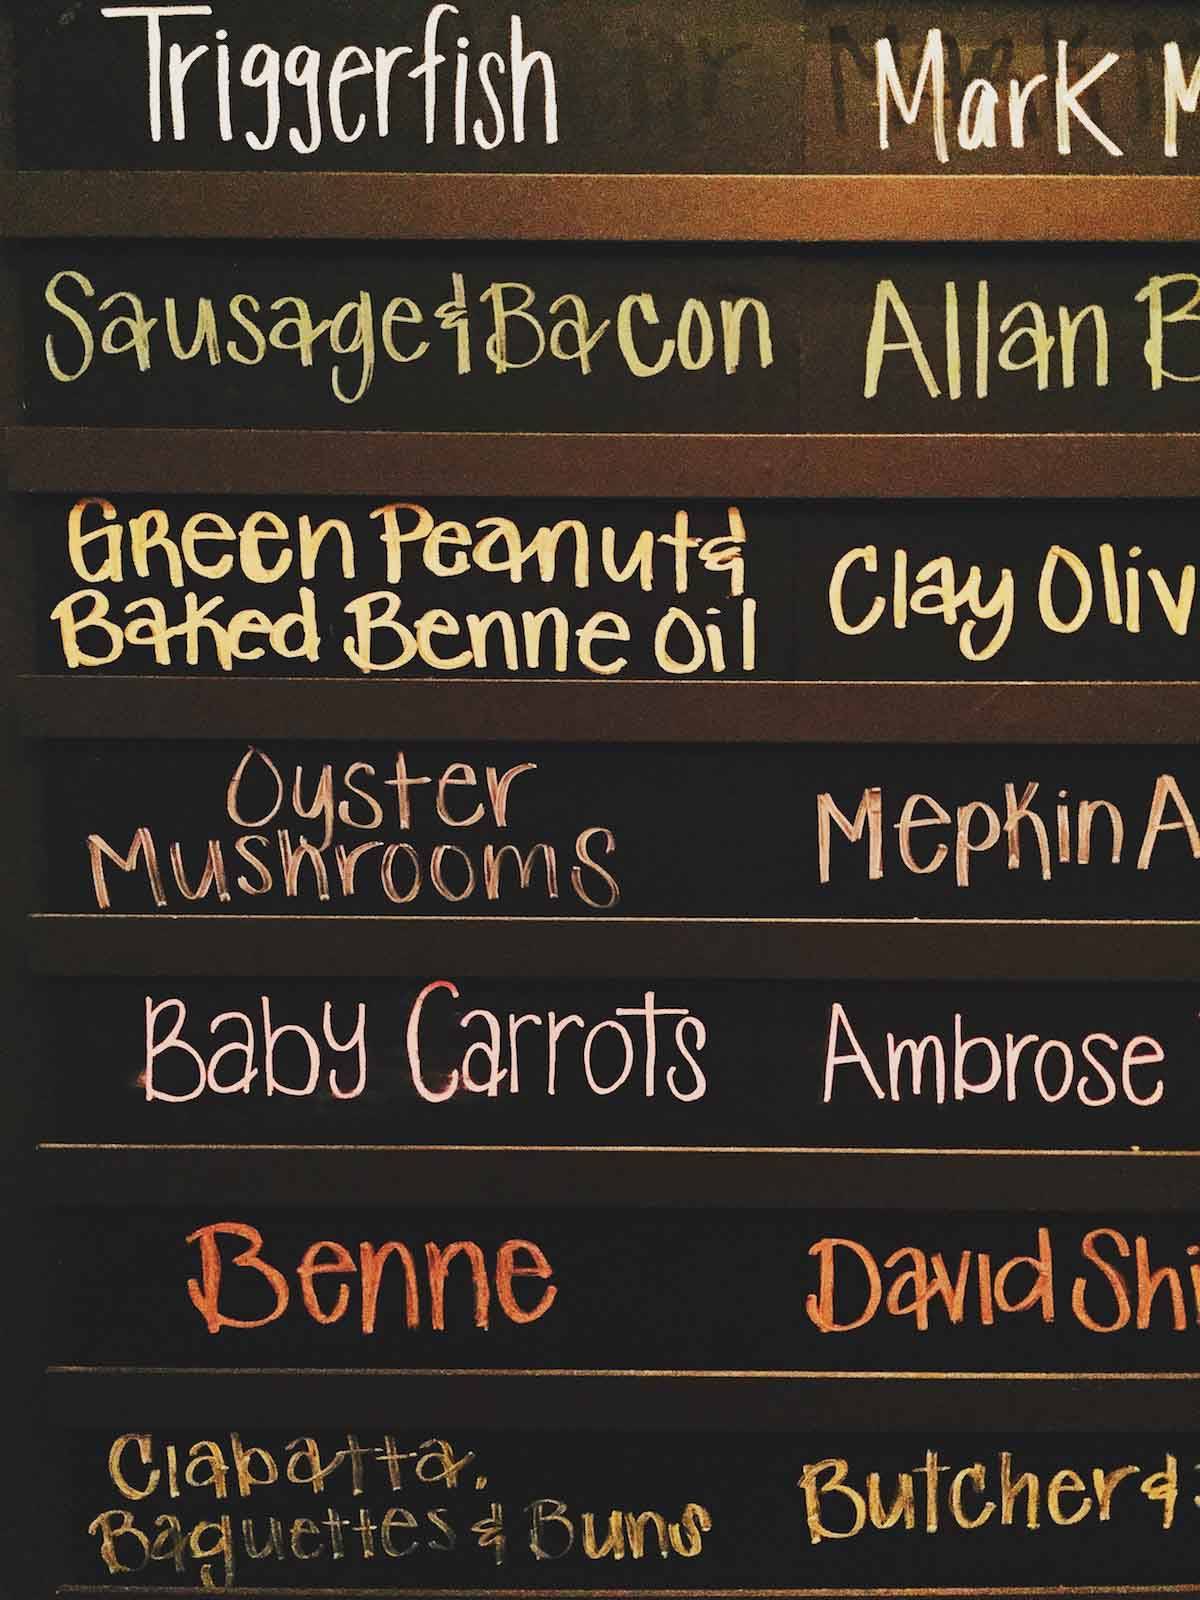 Triggerfish Mark M
Sausage & Bacon Allan B
Green Peanut &
Baked Benne Oil
Clay Oliv
Oyster
Mushrooms
Mepkin A
Baby Carrots Ambrose
Benne David Shi
Ciabatta,
Baguettes & Buns
Butcher &